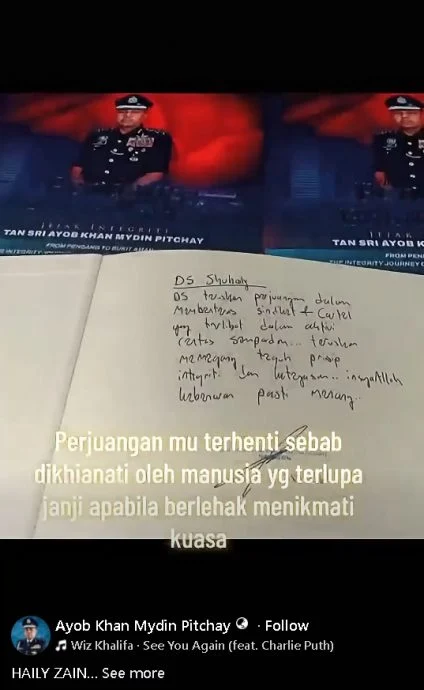 JEJAK INTEGRITI
TAN SRI AYOB KHAN MYDIN PITCHAY
FROM PENDANG TO BUKIT AMAN
THE INTEGRITY
JEJAK
TAN SRI AYOB K
FROM PEN
THE INTEGRITY JOURNEY O
DS Shuhaily
DS teruskan perjuangan dalam
Membanteras sindiket & Cartel
yang terlibat dalam aktiviti
rentas sempadan... teruskan
memegang teguh prinsip
integriti dan ketegasan.. insyaAllah
kebenaran pasti menang..
Perjuangan mu terhenti sebab
dikhianati oleh manusia yg terlupa
janji apabila berlehak menikmati
kuasa
Ayob Khan Mydin Pitchay · Follow
Wiz Khalifa - See You Again (feat. Charlie Puth)
HAILY ZAIN... See more